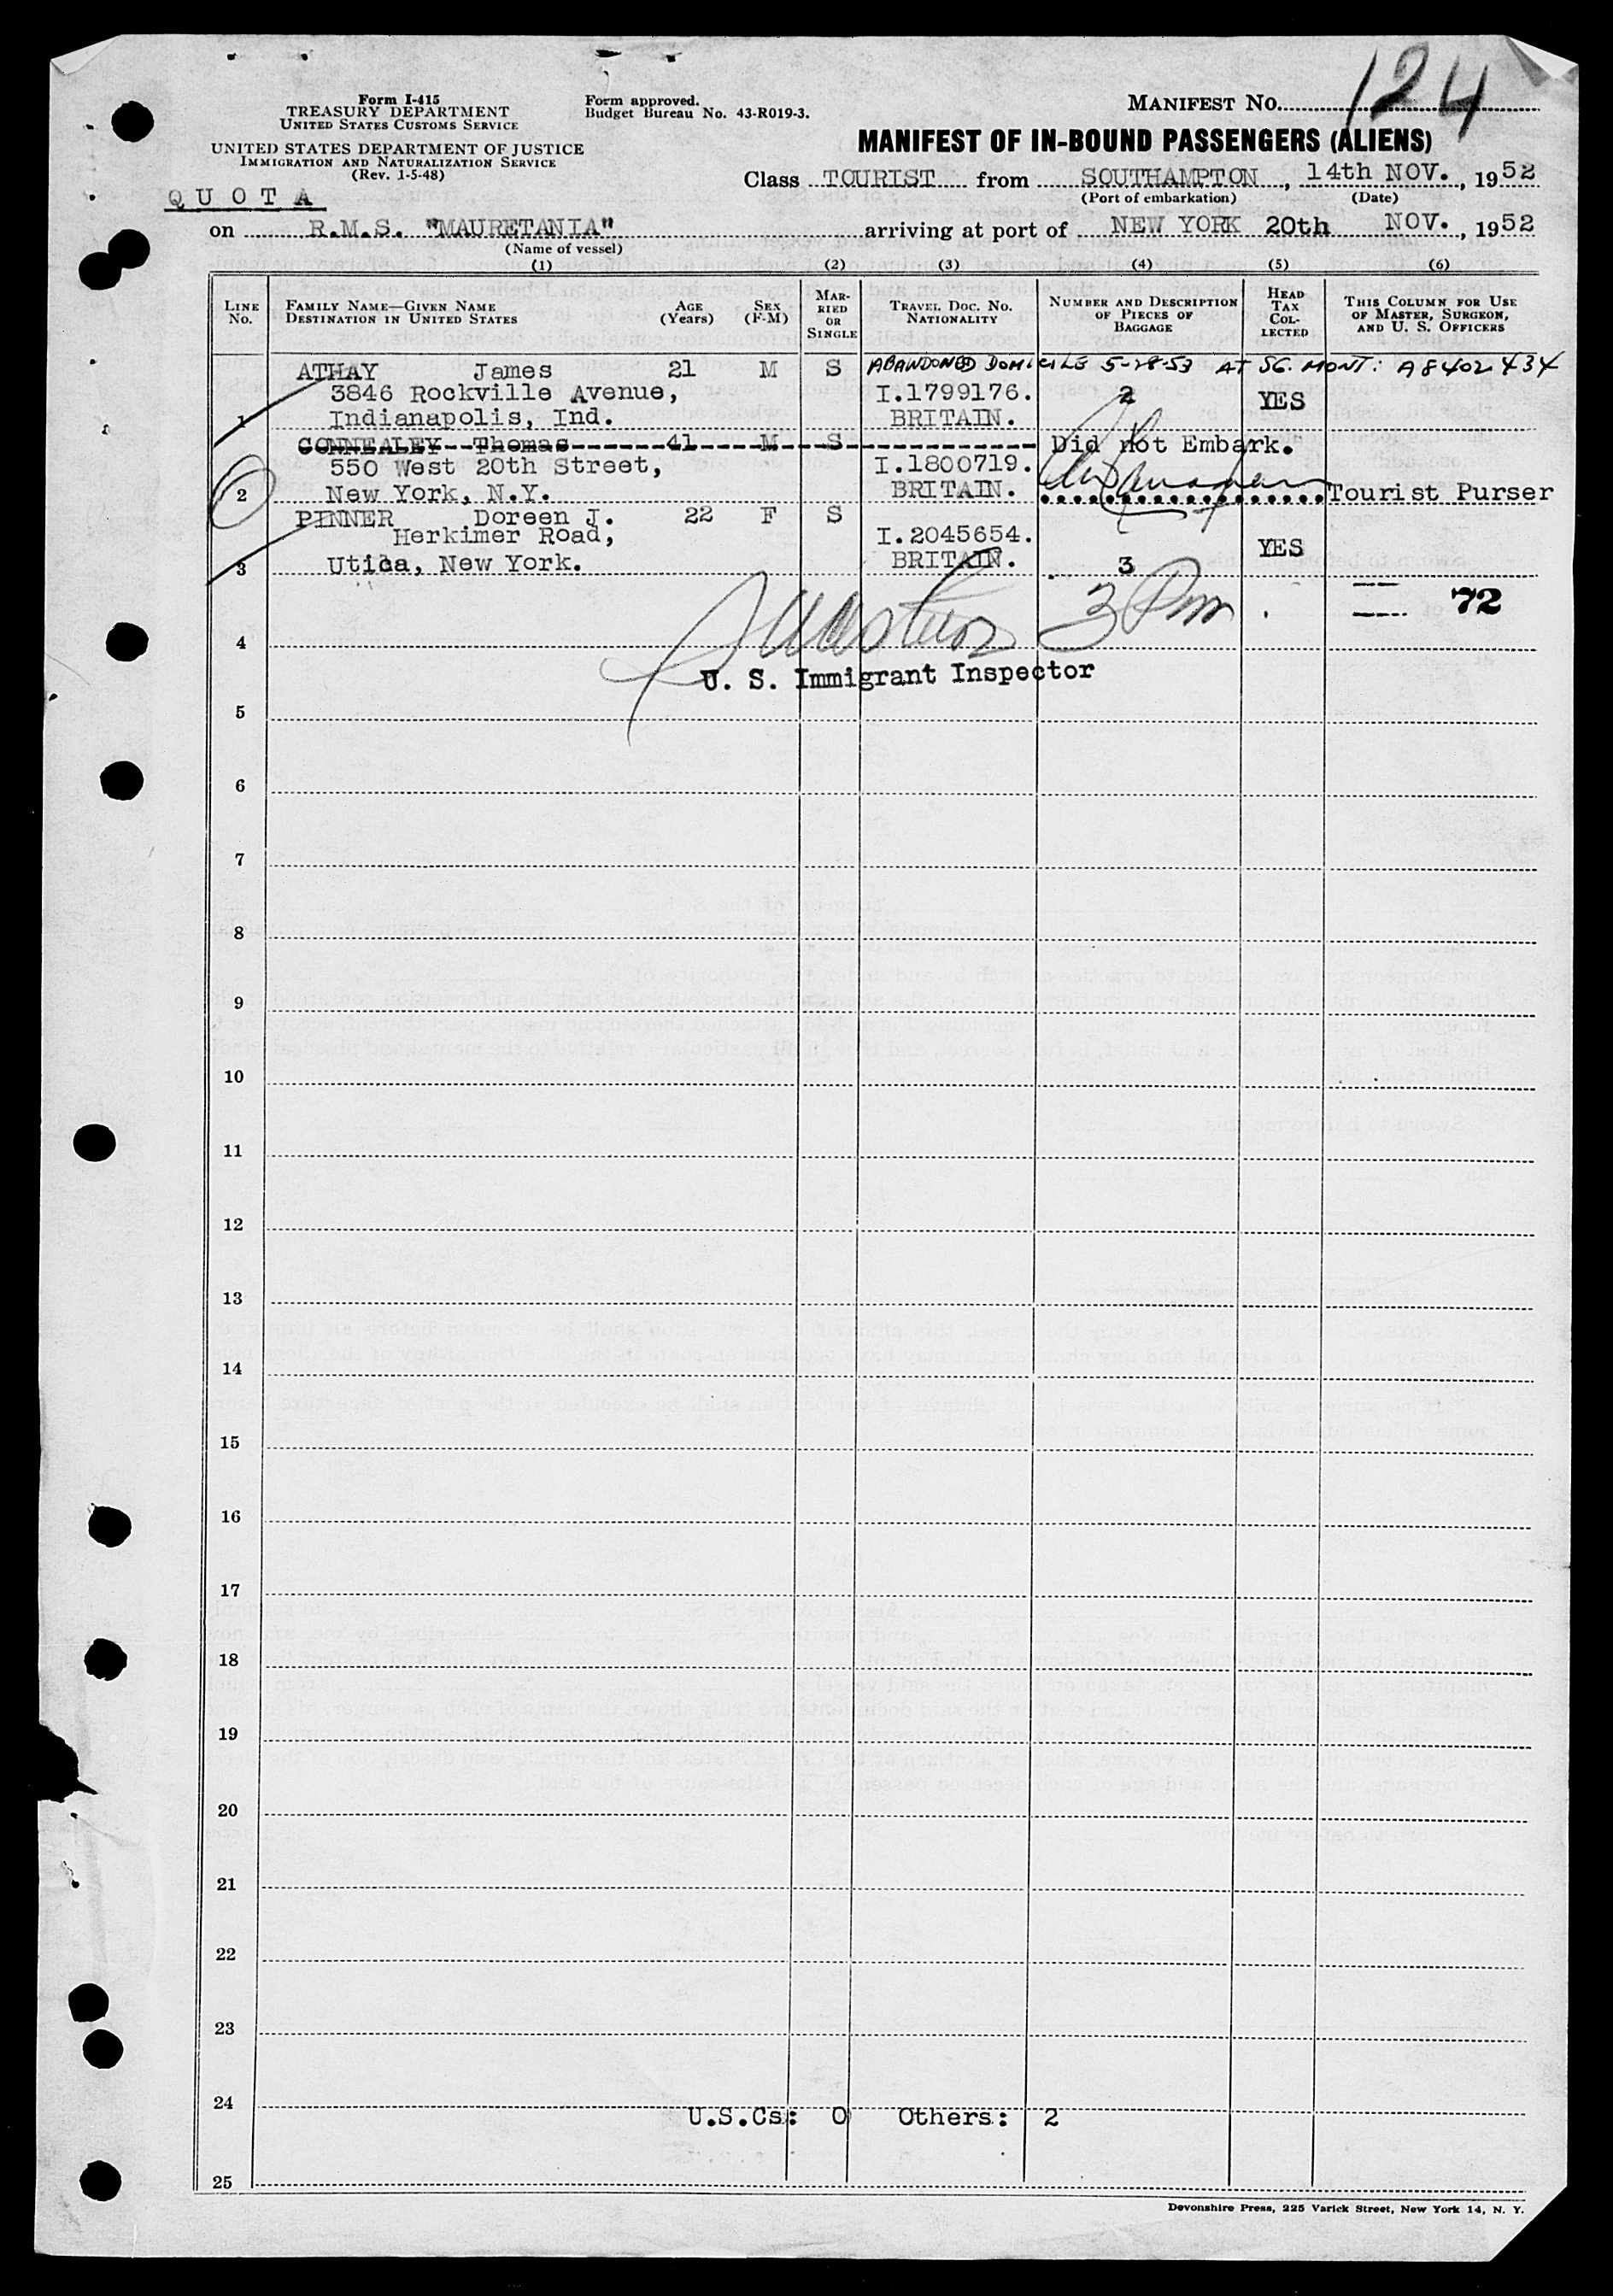 124
Form I-415
TREASURY DEPARTMENT
UNITED STATES CUSTOMS SERVICE
UNITED STATES DEPARTMENT OF JUSTICE
IMMIGRATION AND NATURALIZATION SERVICE
(Rev. 1-5-48)
Form approved.
Budget Bureau No. 43-R019-3.
MANIFEST NO.
MANIFEST OF IN-BOUND PASSENGERS (ALIENS)
Class TOURIST from SOUTHAMPTON, 14th NOV., 1952
(Port of embarkation) (Date)
QUOTA
on R.M.S. "MAURETANIA" arriving at port of NEW YORK 20th NOV., 1952
(Name of vessel)
(1) (2) (3) (4) (5) (6)
LINE No. FAMILY NAME—GIVEN NAME DESTINATION IN UNITED STATES AGE (Years) SEX (F-M) MARRIED OR SINGLE TRAVEL DOC. NO. NATIONALITY NUMBER AND DESCRIPTION OF PIECES OF BAGGAGE HEAD TAX COLLECTED THIS COLUMN FOR USE OF MASTER, SURGEON, AND U. S. OFFICERS
ATHAY James 21 M S ABANDONED DOMICILE 5-28-53 AT SG. MONT: A8402434
3846 Rockville Avenue, I.1799176. 2 YES
1 Indianapolis, Ind. BRITAIN.
CONNEALEY Thomas 41 M S Did not Embark.
550 West 20th Street, I.1800719.
2 New York, N.Y. BRITAIN. Tourist Purser
PINNER Doreen J. 22 F S
Herkimer Road, I.2045654. YES
3 Utica, New York. BRITAIN. 3
3 Pm 72
4
U. S. Immigrant Inspector
5
6
7
8
9
10
11
12
13
14
15
16
17
18
19
20
21
22
23
24
U.S.Cs: 0 Others: 2
25
Devonshire Press, 225 Varick Street, New York 14, N. Y.